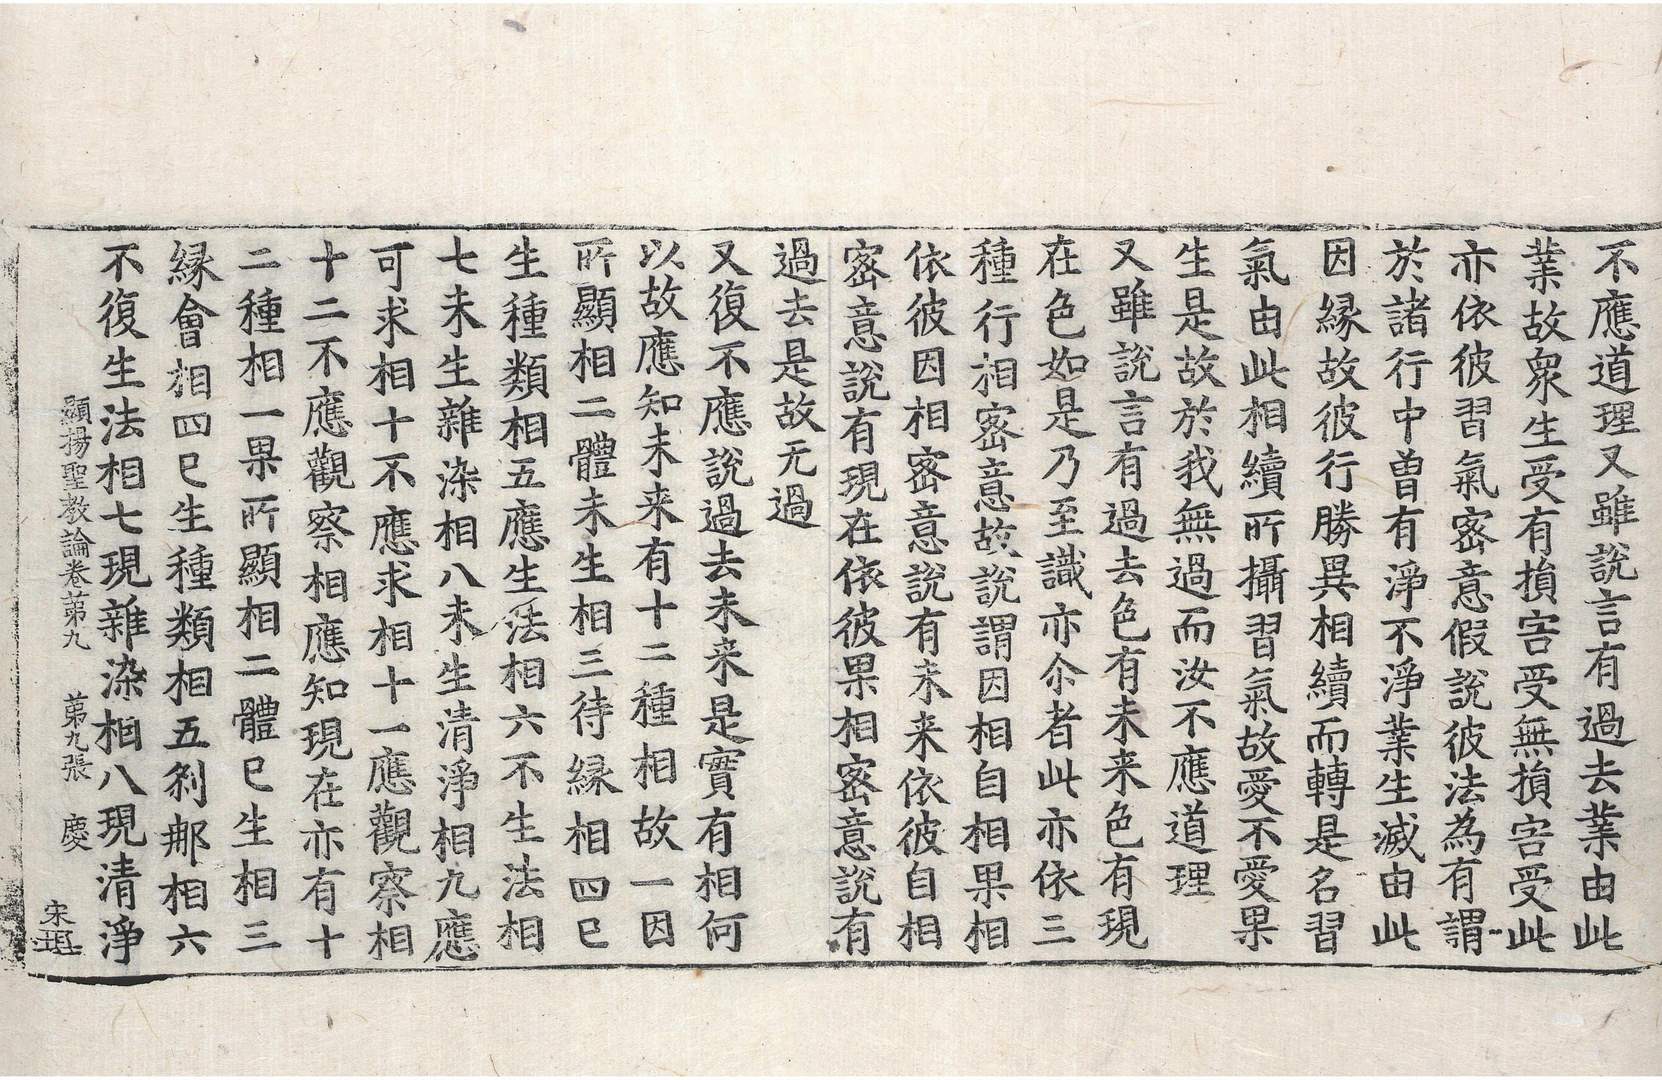 不應道理又雖說言有過去業由此
業故衆生受有損害受無損害受此
亦依彼習氣密意假說彼法為有謂
於諸行中曽有淨不淨業生滅由此
因縁故彼行勝異相續而轉是名習
氣由此相續所攝習氣故愛不愛果
生是故於我無過而汝不應道理
又雖說言有過去色有未来色有現
在色如是乃至識亦尒者此亦依三
種行相密意故說謂因相自相果相
依彼因相密意說有未来依彼自相
密意說有現在依彼果相密意說有
過去是故无過
又復不應說過去未来是實有相何
以故應知未来有十二種相故一因
所顯相二體未生相三待縁相四已
生種類相五應生法相六不生法相
七未生雜染相八未生清淨相九應
可求相十不應求相十一應觀察相
十二不應觀察相應知現在亦有十
二種相一果所顯相二體已生相三
縁會相四已生種類相五剎那相六
不復生法相七現雜染相八現清淨
顯揚聖教論卷苐九　苐九張　慶
宋